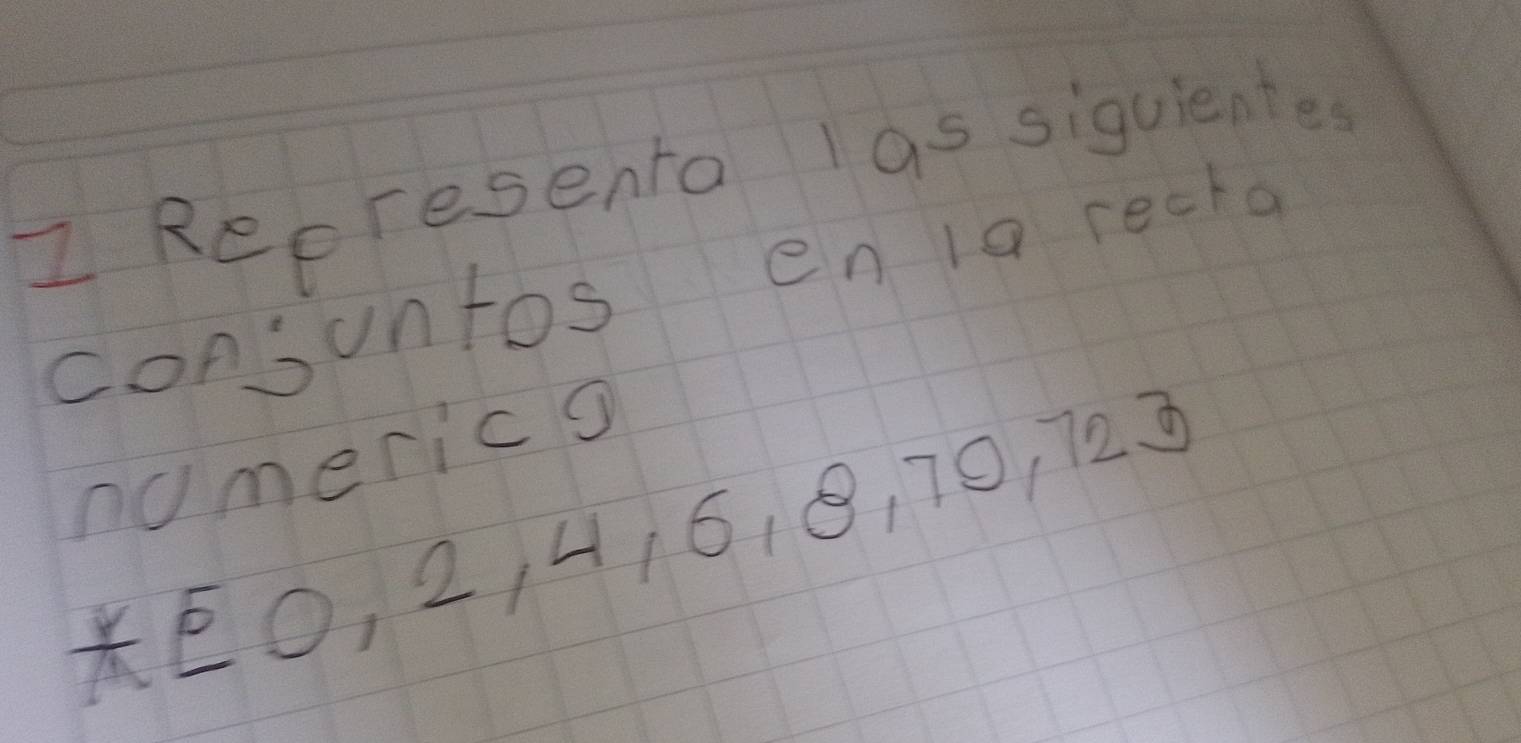 1 Representa las siguientes
conjuntos en la recta
numerica
* {0, 2, 4, 6, 8, 10, 12}